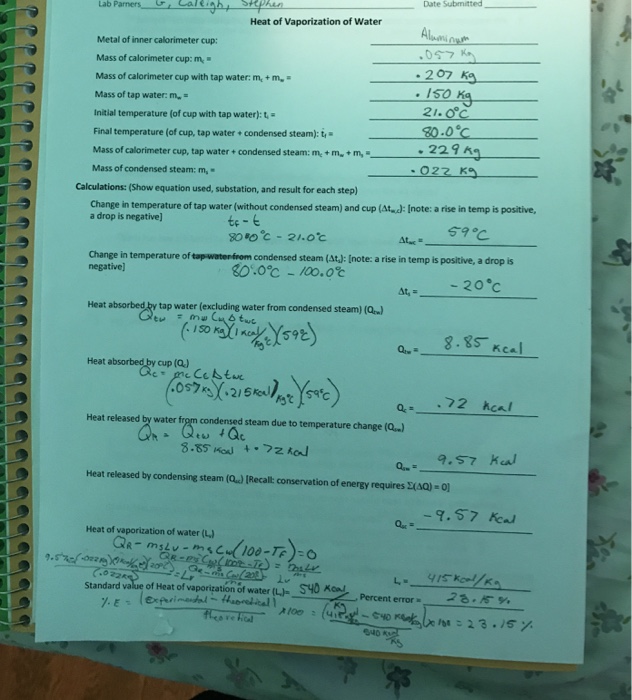 Lab Parners G, Caleigh, Stephen Date Submitted
Heat of Vaporization of Water
Metal of inner calorimeter cup: Aluminum
Mass of calorimeter cup: m꜀ = .057 Kg
Mass of calorimeter cup with tap water: m꜀ + mw = .207 Kg
Mass of tap water: mw = .150 Kg
Initial temperature (of cup with tap water): tᵢ = 21.0°C
Final temperature (of cup, tap water + condensed steam): tf = 80.0°C
Mass of calorimeter cup, tap water + condensed steam: m꜀ + mw + ms = .229 Kg
Mass of condensed steam: ms = .022 Kg
Calculations: (Show equation used, substation, and result for each step)
Change in temperature of tap water (without condensed steam) and cup (Δtwc): [note: a rise in temp is positive,
a drop is negative]
tf - t
80.0°C - 21.0°C Δtwc = 59°C
Change in temperature of tap water from condensed steam (Δts): [note: a rise in temp is positive, a drop is
negative]
80.0°C - 100.0°C
Δts = -20°C
Heat absorbed by tap water (excluding water from condensed steam) (Qtw)
Qtw = mw Cw Δtwc
(.150 Kg)(1 Kcal/Kg°C)(59°C)
Qtw = 8.85 Kcal
Heat absorbed by cup (Qc)
Qc = mc Cc Δtwc
(.057 Kg)(.215 Kcal/Kg°C)(59°C)
Qc = .72 Kcal
Heat released by water from condensed steam due to temperature change
Qtw + Qc
8.85 Kcal + .72 Kcal
9.57 Kcal
Heat released by condensing steam [Recall: conservation of energy requires Σ(ΔQ) = 0]
-9.57 Kcal
Heat of vaporization of water (Lv)
QR - msLv - msCw(100-TF) = 0
Lv = 415 Kcal/Kg
Standard value of Heat of vaporization of water (Lv)= 540 Kcal/Kg Percent error = 23.15%
%E = |Experimental - theoretical| / theoretical x100 = x100 = 23.15%